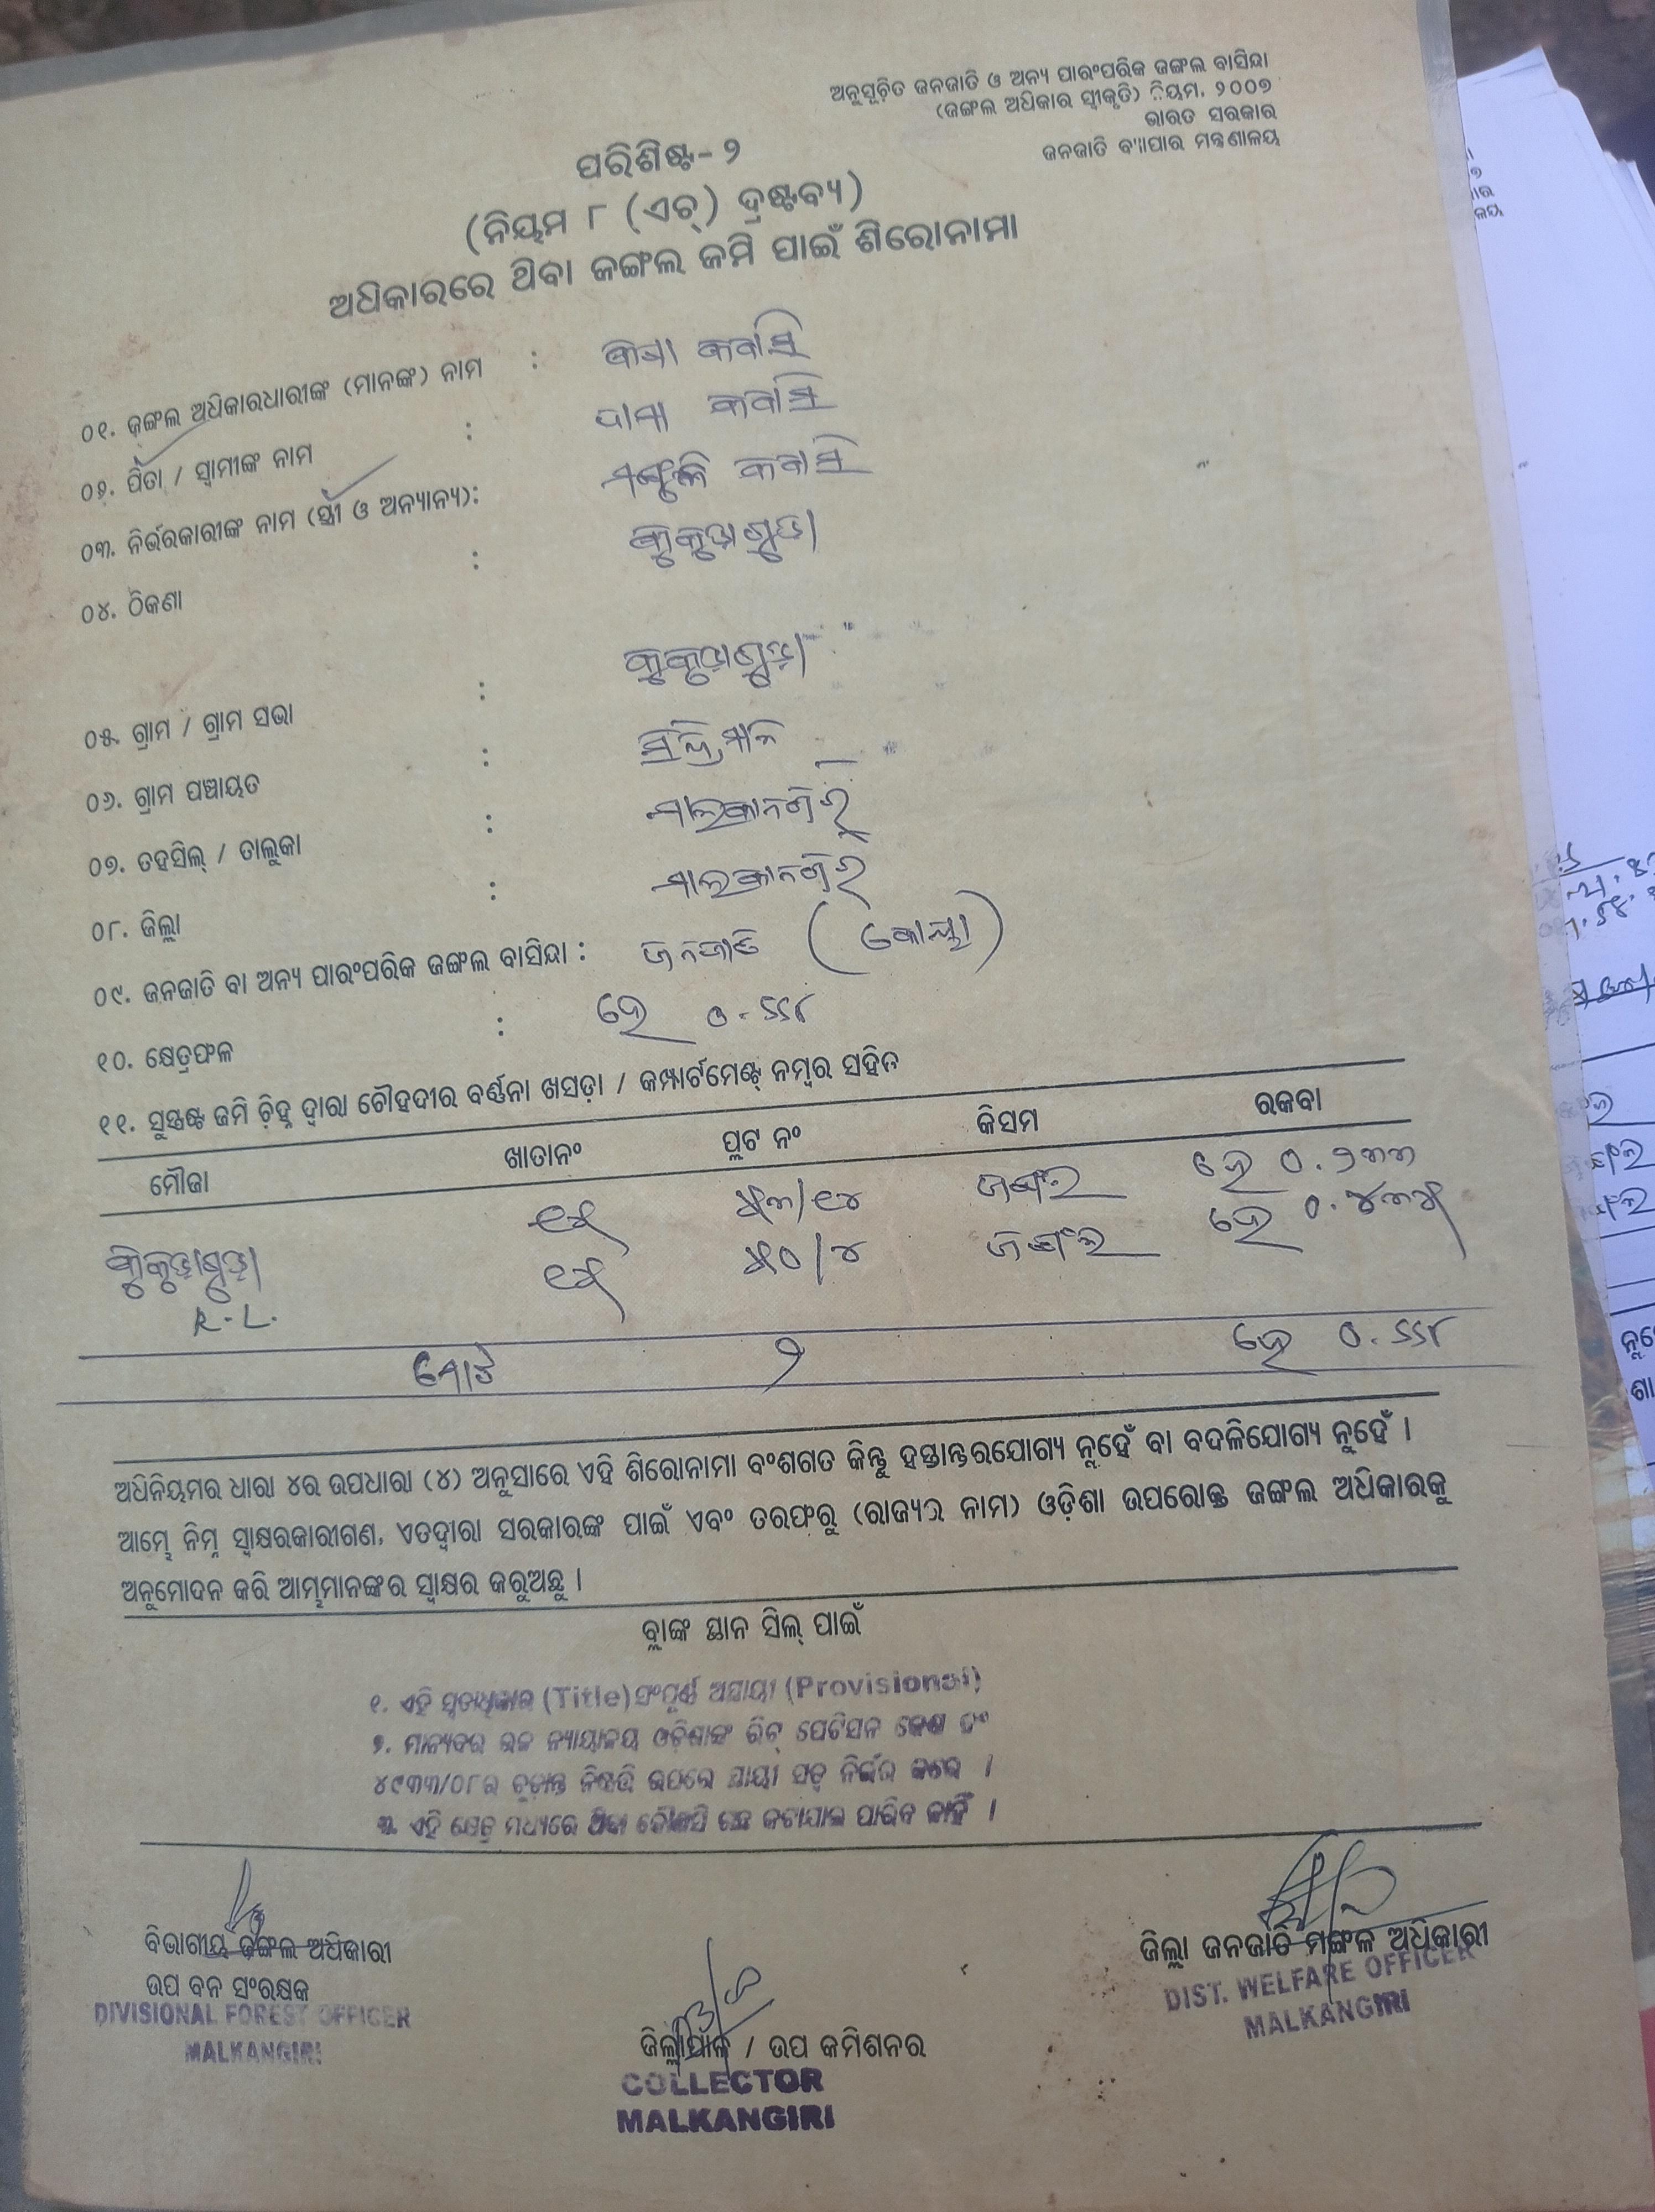 ଅନୁସୂଚିତ ଜନଜାତି ଓ ଅନ୍ୟ ପାରଂପରିକ ଜଙ୍ଗଲ ବାସିନ୍ଦା
(ଜଙ୍ଗଲ ଅଧିକାର ସ୍ୱୀକୃତି) ନିୟମ, ୨୦୦୭
ଭାରତ ସରକାର
ଜନଜାତି ବ୍ୟାପାର ମନ୍ତ୍ରଣାଳୟ
ପରିଶିଷ୍ଟ-୨
(ନିୟମ ୮ (ଏଚ୍) ଦ୍ରଷ୍ଟବ୍ୟ)
ଅଧିକାରରେ ଥିବା ଜଙ୍ଗଲ ଜମି ପାଇଁ ଶିରୋନାମା
୦୧. ଜଙ୍ଗଲ ଅଧିକାରଧାରୀଙ୍କ (ମାନଙ୍କ) ନାମ : କବାସି
୦୨. ପିତା / ସ୍ୱାମୀଙ୍କ ନାମ : କବାସି
୦୩. ନିର୍ଭରକାରୀଙ୍କ ନାମ (ସ୍ତ୍ରୀ ଓ ଅନ୍ୟାନ୍ୟ): କବାସି
୦୪. ଠିକଣା : କୁକୁଡାଗୁଡା
୦୫. ଗ୍ରାମ / ଗ୍ରାମ ସଭା : କୁକୁଡାଗୁଡା
୦୬. ଗ୍ରାମ ପଞ୍ଚାୟତ :
୦୭. ତହସିଲ୍ / ତାଲୁକା : ମାଲକାନଗିରି
୦୮. ଜିଲ୍ଲା : ମାଲକାନଗିରି
୦୯. ଜନଜାତି ବା ଅନ୍ୟ ପାରଂପରିକ ଜଙ୍ଗଲ ବାସିନ୍ଦା : ଜନଜାତି (କୋୟା)
୧୦. କ୍ଷେତ୍ରଫଳ : ହେ ୦.୬୬୮
୧୧. ସୁସ୍ପଷ୍ଟ ଜମି ଚିହ୍ନ ଦ୍ୱାରା ଚୌହଦୀର ବର୍ଣ୍ଣନା ଖସଡ଼ା / କମ୍ପାର୍ଟମେଣ୍ଟ୍ ନମ୍ବର ସହିତ
ମୌଜା ଖାତାନଂ ପ୍ଲଟ ନଂ କିସମ ରକବା
୧୫ ୫୩/୧୪ ଜଙ୍ଗଲ ହେ ୦.୨୩୩
କୁକୁଡାଗୁଡା ୧୫ ୫୦/୪ ଜଙ୍ଗଲ ହେ ୦.୪୩୫
R.L.
ମୋଟ ୨ ହେ ୦.୬୬୮
ଅଧିନିୟମର ଧାରା ୪ର ଉପଧାରା (୪) ଅନୁସାରେ ଏହି ଶିରୋନାମା ବଂଶଗତ କିନ୍ତୁ ହସ୍ତାନ୍ତରଯୋଗ୍ୟ ନୁହେଁ ବା ବଦଳିଯୋଗ୍ୟ ନୁହେଁ ।
ଆମ୍ଭେ ନିମ୍ନ ସ୍ୱାକ୍ଷରକାରୀଗଣ, ଏତଦ୍ୱାରା ସରକାରଙ୍କ ପାଇଁ ଏବଂ ତରଫରୁ (ରାଜ୍ୟର ନାମ) ଓଡ଼ିଶା ଉପରୋକ୍ତ ଜଙ୍ଗଲ ଅଧିକାରକୁ
ଅନୁମୋଦନ କରି ଆମ୍ଭମାନଙ୍କର ସ୍ୱାକ୍ଷର କରୁଅଛୁ ।
ବ୍ଲାଙ୍କ ସ୍ଥାନ ସିଲ୍ ପାଇଁ
୧. ଏହି ସ୍ୱତ୍ୱାଧିକାର (Title) ସଂପୂର୍ଣ୍ଣ ଅସ୍ଥାୟୀ (Provisional)
୨. ମାନ୍ୟବର ଉଚ୍ଚ ନ୍ୟାୟାଳୟ ଓଡ଼ିଶାଙ୍କ ରିଟ୍ ପେଟିସନ କେଶ ନଂ
୪୯୩୩/୦୮ର ଚୂଡ଼ାନ୍ତ ନିଷ୍ପତ୍ତି ଉପରେ ସ୍ଥାୟୀ ସତ୍ୱ ନିର୍ଭର କରେ ।
୩. ଏହି କ୍ଷେତ୍ର ମଧ୍ୟରେ ଥିବା କୌଣସି ଗଛ କଟାଯାଇ ପାରିବ ନାହିଁ ।
ବିଭାଗୀୟ ଜଙ୍ଗଲ ଅଧିକାରୀ
ଉପ ବନ ସଂରକ୍ଷକ
DIVISIONAL FOREST OFFICER
MALKANGIRI
ଜିଲ୍ଲାପାଳ / ଉପ କମିଶନର
COLLECTOR
MALKANGIRI
ଜିଲ୍ଲା ଜନଜାତି ମଙ୍ଗଳ ଅଧିକାରୀ
DIST. WELFARE OFFICER
MALKANGIRI